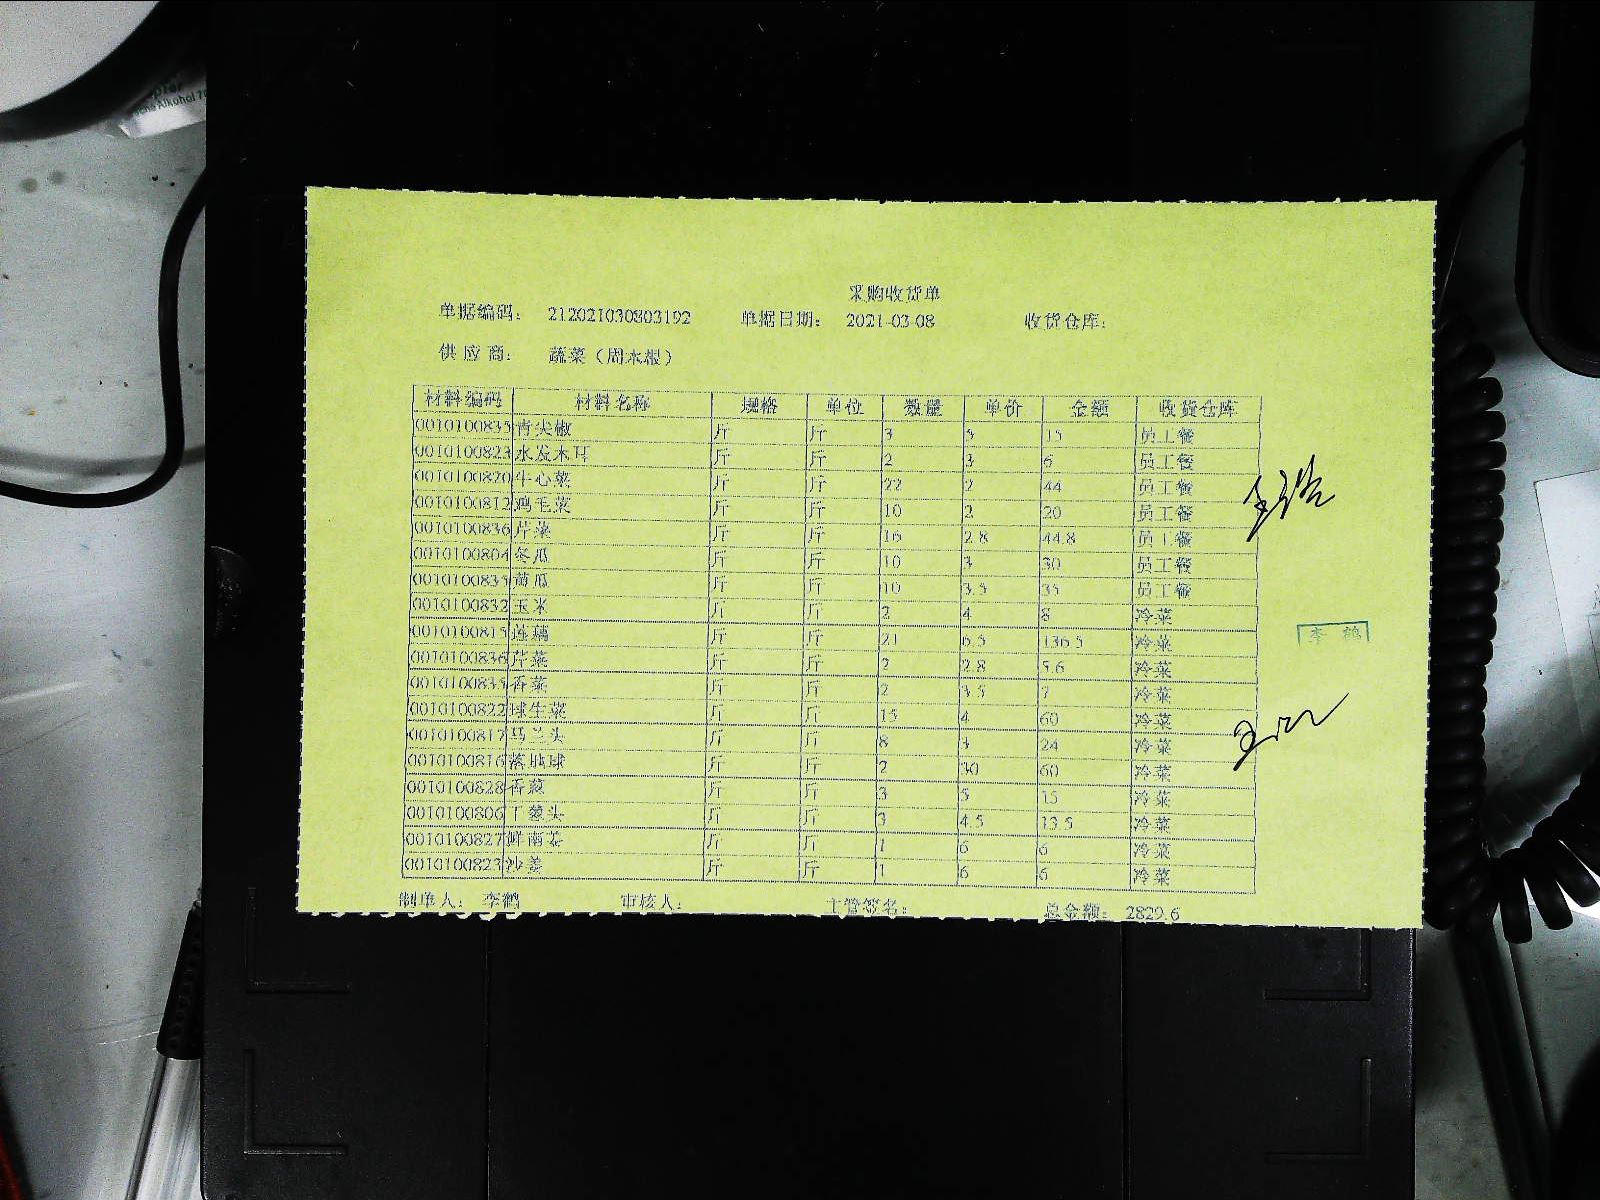 Alkohol 70
采购收货单
单据编码： 212021030803192 单据日期： 2021-03-08 收货仓库：
供应商： 蔬菜（周水根）
材料编码 材料名称 规格 单位 数量 单价 金额 收货仓库
0010100835 青尖椒 斤 斤 3 5 15 员工餐
0010100823 水发木耳 斤 斤 2 3 6 员工餐
0010100820 牛心菜 斤 斤 22 2 44 员工餐
0010100812 鸡毛菜 斤 斤 10 2 20 员工餐
0010100836 芹菜 斤 斤 16 2.8 44.8 员工餐
0010100804 冬瓜 斤 斤 10 3 30 员工餐
0010100835 黄瓜 斤 斤 10 3.5 35 员工餐
0010100832 玉米 斤 斤 2 4 8 冷菜
0010100815 莲藕 斤 斤 21 6.5 136.5 冷菜
0010100836 芹菜 斤 斤 2 2.8 5.6 冷菜
0010100835 香菜 斤 斤 2 3.5 7 冷菜
0010100822 球生菜 斤 斤 15 4 60 冷菜
0010100817 马兰头 斤 斤 8 3 24 冷菜
0010100816 斤 斤 2 30 60 冷菜
0010100828 香葱 斤 斤 3 5 15 冷菜
0010100806 干葱头 斤 斤 3 4.5 13.5 冷菜
0010100827 鲜南姜 斤 斤 1 6 6 冷菜
0010100823 沙姜 斤 斤 1 6 6 冷菜
李鹤
制单人： 李鹤 审核人： 主管签名： 总金额： 2829.6